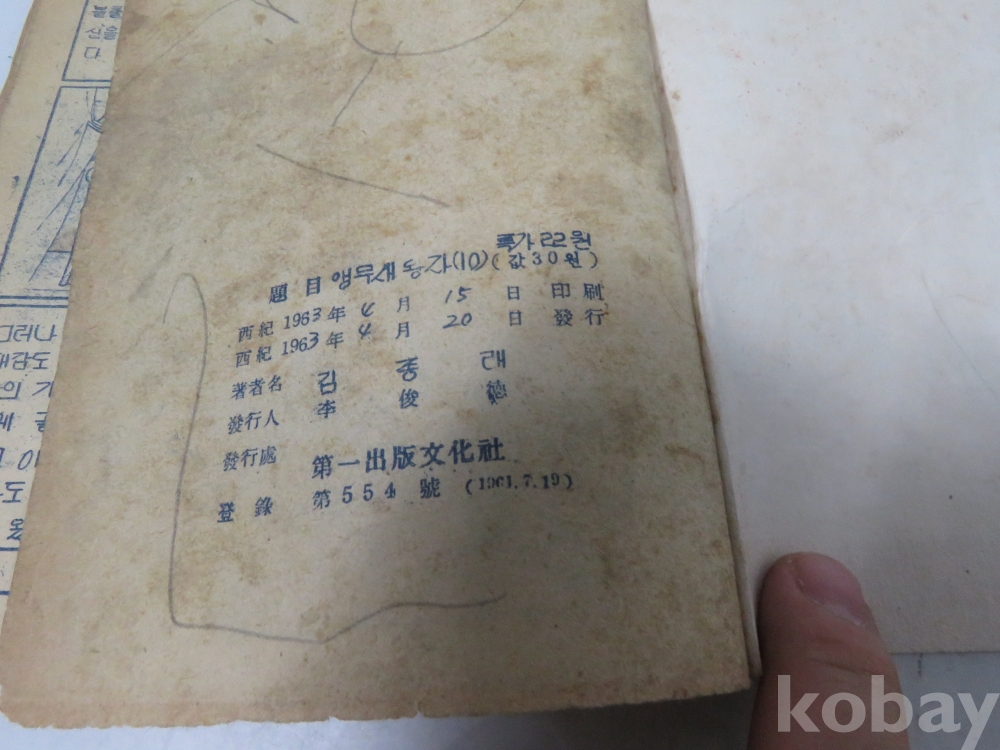 불
신을
다
그러나
대감도
의 기
특가 22원
題目 앵무새 동자(10) (값30원)
西紀 1963年 4月 15日 印刷
西紀 1963年 4月 20日 發行
著者名 김종래
發行人 李俊
發行處 第一出版文化社
登錄 第554號 (1961.7.19)
kobay